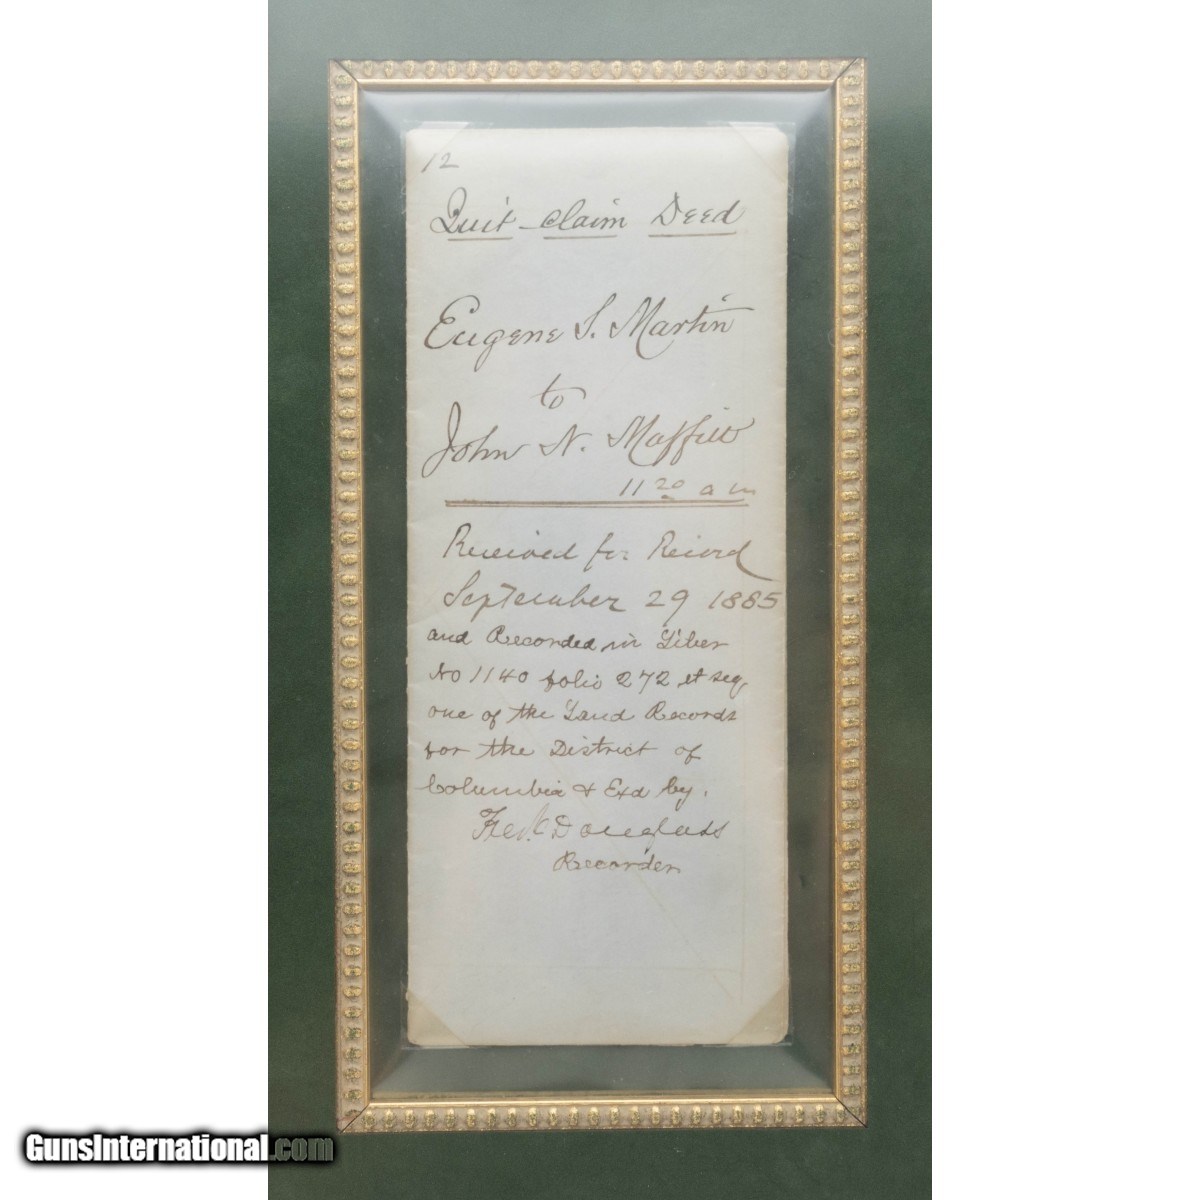 12
Quit-claim Deed
Eugene S. Martin
to
John N. Maffitt
11 20 a m
Received for Record
September 29 1885
and Recorded in Liber
No 1140 folio 272 et seq
one of the Land Records
for the District of
Columbia & Exd by.
Fredk Douglass
Recorder
GunsInternational.com